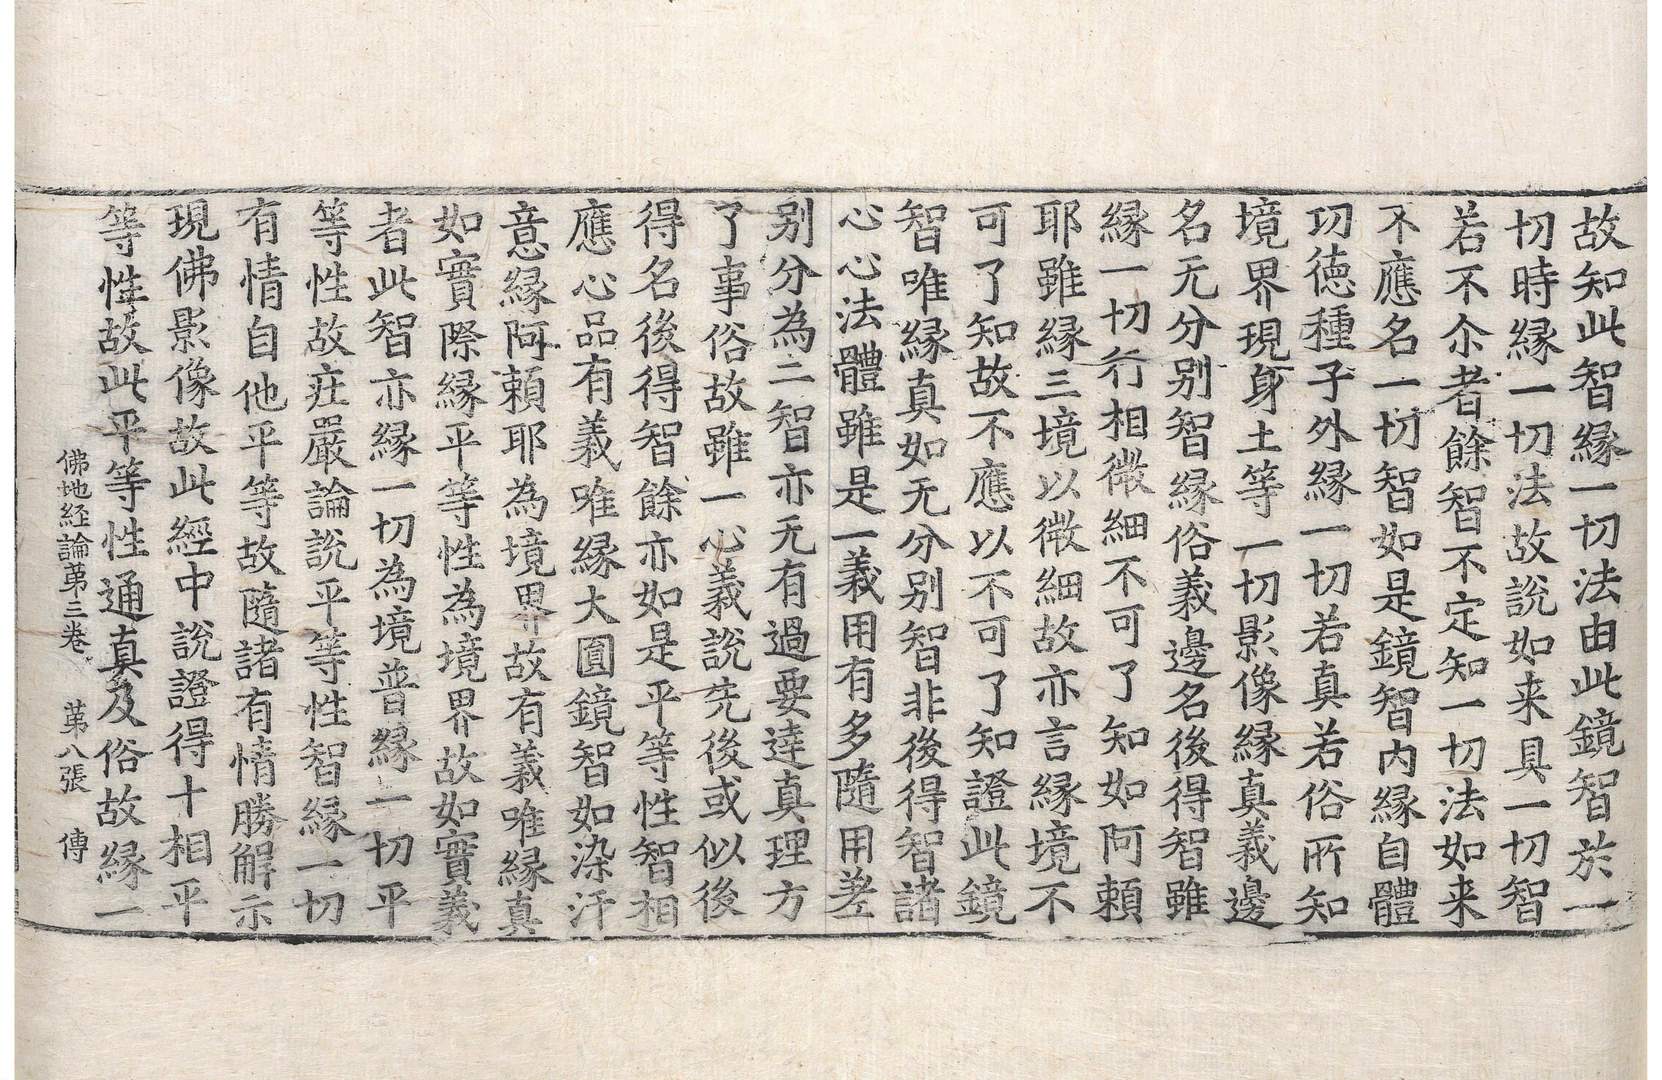 故知此智縁一切法由此鏡智於一
切時縁一切法故說如来具一切智
若不尒者餘智不定知一切法如来
不應名一切智如是鏡智內縁自體
功徳種子外縁一切若真若俗所知
境界現身土等一切影像縁真義邊
名无分别智縁俗義邊名後得智雖
縁一切行相微細不可了知如阿頼
耶雖縁三境以微細故亦言縁境不
可了知故不應以不可了知證此鏡
智唯縁真如无分别智非後得智諸
心心法體雖是一義用有多隨用差
别分為二智亦无有過要達真理方
了事俗故雖一心義說先後或似後
得名後得智餘亦如是平等性智相
應心品有義唯縁大圓鏡智如染汙
意縁阿頼耶為境界故有義唯縁真
如實際縁平等性為境界故如實義
者此智亦縁一切為境普縁一切平
等性故莊嚴論說平等性智縁一切
有情自他平等故隨諸有情勝解示
現佛影像故此經中說證得十相平
等性故此平等性通真及俗故縁一
佛地経論苐三卷　苐八張　傳